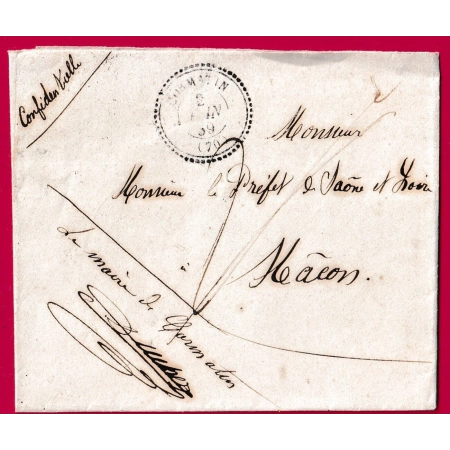 Confidentielle
CORMATIN
2
JUIN
39
(70)
Monsieur
Monsieur le Préfet de Saône et Loire
Mâcon.
Le maire de Cormatin